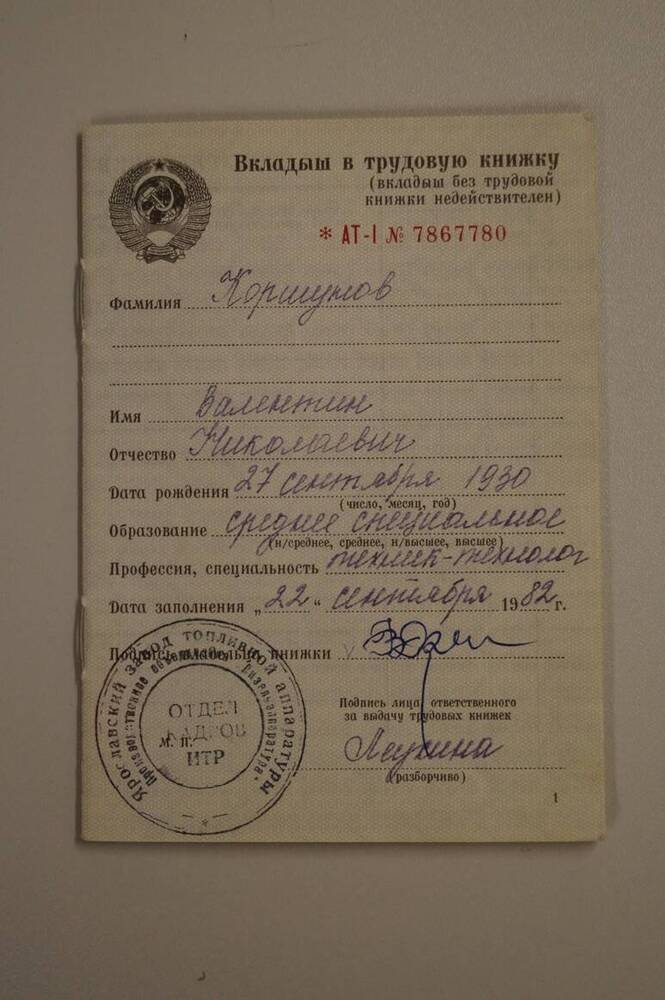 Вкладыш в трудовую книжку
(вкладыш без трудовой
книжки недействителен)
* АТ-I № 7867780
Фамилия Коршунов
Имя Валентин
Отчество Николаевич
Дата рождения 27 сентября 1930
(число, месяц, год)
Образование среднее специальное
(н/среднее, среднее, н/высшее, высшее)
Профессия, специальность техник-технолог
Дата заполнения „22“ сентября 1982 г.
Подпись владельца книжки
Подпись лица, ответственного
за выдачу трудовых книжек
(разборчиво)
М. П.
Ярославский завод топливной аппаратуры
Производственное объединение "Дизельаппаратура"
ОТДЕЛ
КАДРОВ
ИТР
1